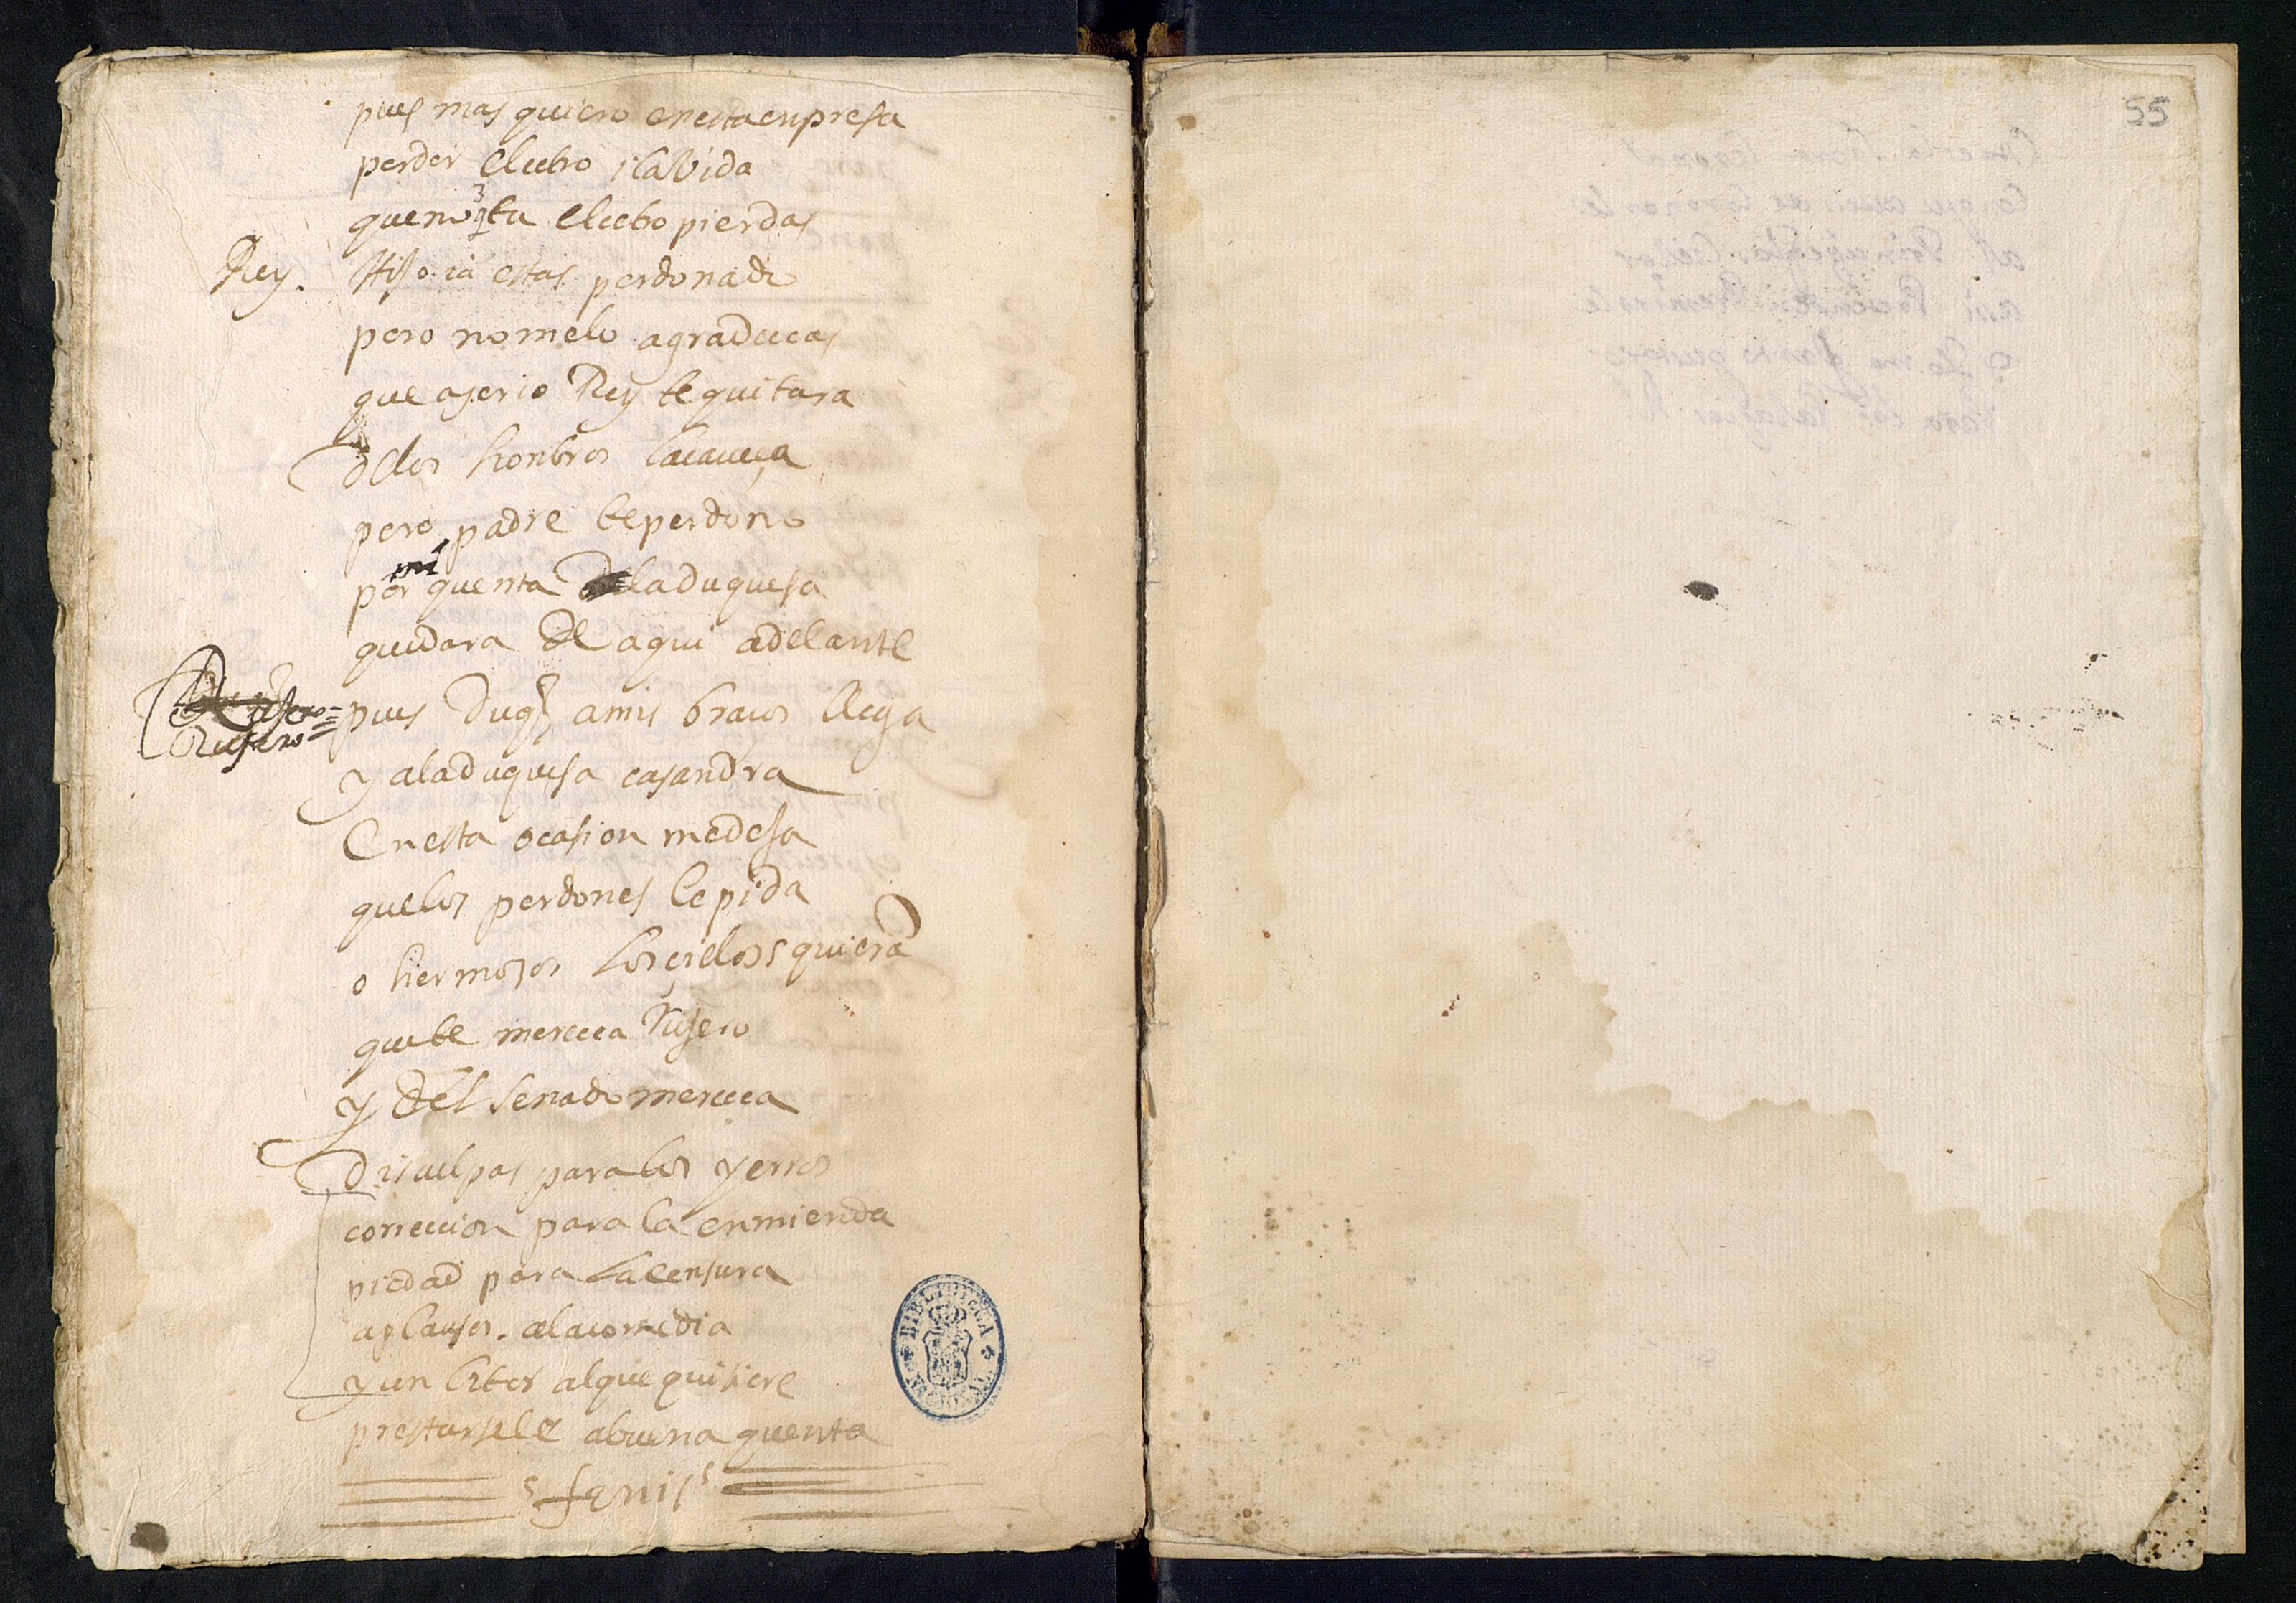 pues mas quiero enesta enpresa
perder el cetro ila Vida
que no q tu el cetro pierdas
Rey. Hijo ia estas perdonado
pero no melo agradeccas
que aser io Rey te quitara
delos honbros la caueça
pero padre te perdono
por mi quenta la duquesa
quedara de aqui adelante
Rujero= pues duqe amis bracos llega
y ala duquesa casandra
En esta ocasion me deja
que los perdones le pida
o hermosos los çielos quierã
que te merecca Rujero
y del senado merecca
disculpas para los yerros
correccion para la enmienda
piedad para la censura
aplausos. ala comedia
y un bitor al que quisiere
prestarsele abuena quenta
fenis
BIBLIOTECA
55